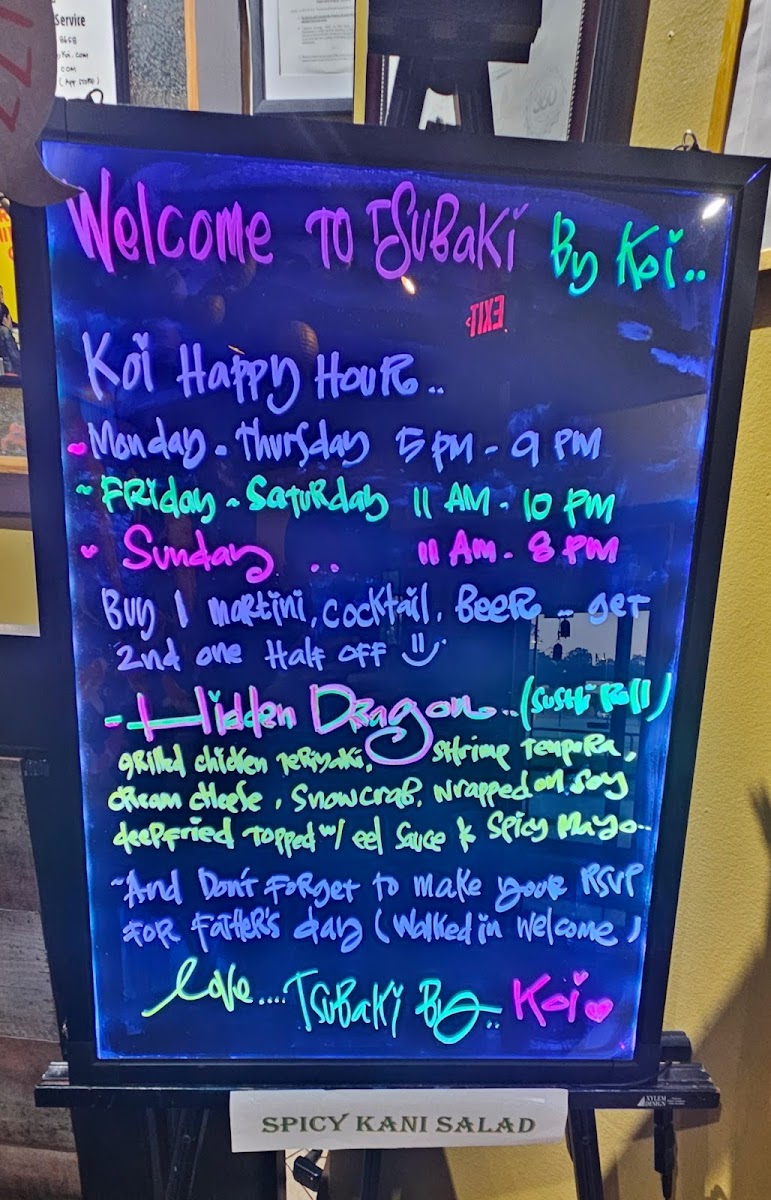 Service
8658
com
(App STORE)
Welcome To Tsubaki By Koi..
EXIT
Koi Happy Hour..
Monday - Thursday 5 PM - 9 PM
~ Friday ~ Saturday 11 AM - 10 PM
Sunday .. 11 AM - 8 PM
Buy 1 martini, cocktail, Beer .. get
2nd one Half off
- Hidden Dragon.. (Sushi Roll)
grilled chicken Teriyaki, Shrimp Tempura,
cream cheese, snowcrab, wrapped on soy
deepfried Topped w/ eel sauce & spicy Mayo..
~And Don't Forget to make your RSVP
For Father's day (Walked in Welcome)
Love.... Tsubaki By.. Koi
XYLEM DESIGN
SPICY KANI SALAD